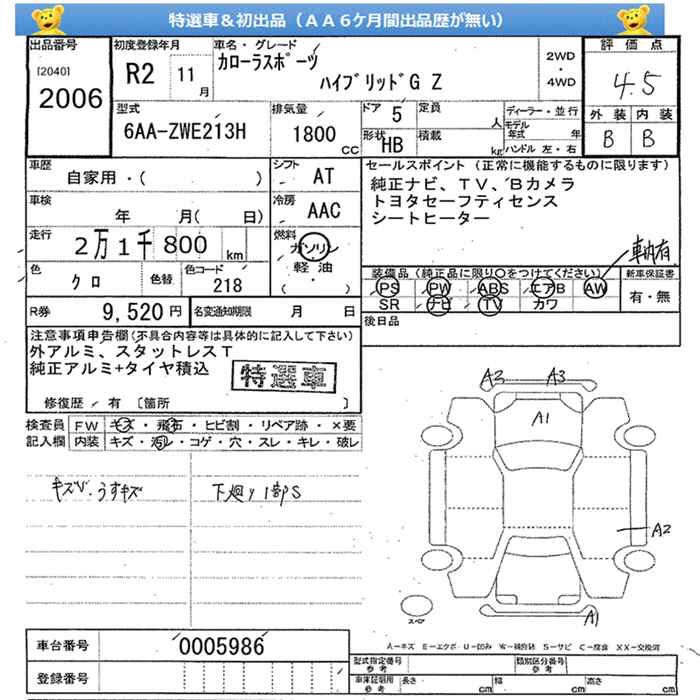 特選車＆初出品（ＡＡ６ケ月間出品歴が無い）
出品番号
[2040]
2006
初度登録年月
R2 11 月
車名・グレード
カローラスポーツ
ハイブリッドG Z
2WD
・
4WD
評価点
4.5
外装 内装
B B
型式
6AA-ZWE213H
排気量
1800 CC
ドア 5
形状 HB
定員 人
積載 kg
ディーラー・並行
モデル年式 年
ハンドル 左・右
車歴
自家用・( )
車検
年 月( 日)
走行
2万1千800 km
色
クロ
色替
色コード
218
シフト
AT
冷房
AAC
燃料
ガソリン
軽油・
( )
セールスポイント（正常に機能するものに限ります）
純正ナビ、ＴＶ、Ｂカメラ
トヨタセーフティセンス
シートヒーター
車内有
装備品（純正品に限り○をつけてください）
PS PW ABS エアB AW
SR ナビ TV カワ
新車保証書
有・無
後日品
R券 9,520円
名変通知期限 月 日
注意事項申告欄(不具合内容等は具体的に記入して下さい)
外アルミ、スタットレスＴ
純正アルミ+タイヤ積込
特選車
修復歴 有 〔箇所 〕
検査員記入欄
FW キズ・飛石・ヒビ割・リペア跡・×要
内装 キズ・汚レ・コゲ・穴・スレ・キレ・破レ
キズV.うすキズ
下廻り1部S
A2 A3
A1
A2
A1
スペア
A－キズ E－エクボ U－凹み W－補修跡 S－サビ C－腐食 XX－交換済
車台番号 0005986
登録番号
型式指定番号 参考
類別区分番号 参考
車庫証明用 参考
長さ cm 幅 cm 高さ cm